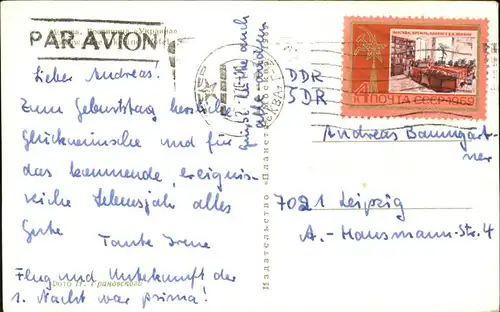 PAR AVION
Lieber Andreas.
Zum Geburtstag herzliche
Glückwünsche und für
das kommende, ereignis-
reiche Lebensjahr alles
Gute
Tante Irene
Flug und Unterkunft der
1. Nacht war prima!
Фото Н. Грановского
Издательство «Планета»
МОСКВА, КРЕМЛЬ, КАБИНЕТ В.И. ЛЕНИНА
4К ПОЧТА СССР·1969
DDR
SDR
Andreas Baumgart-
ner
7021 Leipzig
A.-Hausmann-Str. 4